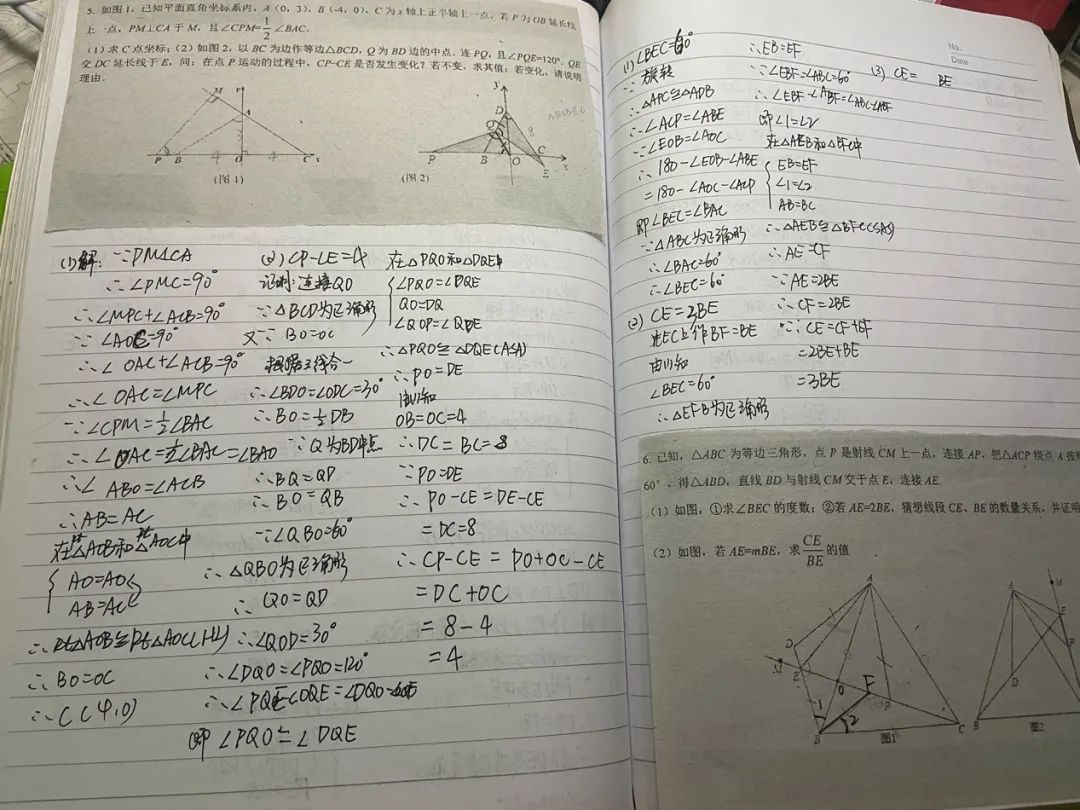 5. 如图1, 已知平面直角坐标系内, A (0, 3), B (-4, 0), C 为 x 轴上正半轴上一点, 若 P 为 OB 延长线
上一点, PM⊥CA 于 M, 且∠CPM=1/2∠BAC.
(1) 求 C 点坐标; (2) 如图2, 以 BC 为边作等边△BCD, Q 为 BD 边的中点. 连 PQ, 且∠PQE=120°. QE
交 DC 延长线于 E, 问: 在点 P 运动的过程中, CP-CE 是否发生变化? 若不变, 求其值; 若变化, 请说明
理由.
M
A
P B 4 O 4 C x
(图1)
y
D
Q
8
P B O C x
E
(图2)
(1)解: ∵PM⊥CA
∴∠PMC=90°
∴∠MPC+∠ACB=90°
∵∠AOC=90°
∴∠OAC+∠ACB=90°
∴∠OAC=∠MPC
∵∠CPM=1/2∠BAC
∴∠OAC=1/2∠BAC=∠BAO
∴∠ABO=∠ACB
∴AB=AC
在Rt△AOB和Rt△AOC中
AO=AO
AB=AC
∴Rt△AOB≌Rt△AOC(HL)
∴BO=OC
∴C(4,0)
(2) CP-CE=4
证明:连接QO
∵△BCD为正三角形
又∵BO=OC
根据三线合一
∴∠BDO=∠ODC=30°
∴BO=1/2DB
∵Q为BD中点
∴BQ=QD
∴BO=QB
∵∠QBO=60°
∴△QBO为正三角形
∴QO=QD
∴∠QOD=30°
∴∠DQO=∠PQE=120°
∴∠PQE-∠OQE=∠DQO-∠OQE
即∠PQO=∠DQE
在△PQO和△DQE中
∠PQO=∠DQE
QO=DQ
∠QOP=∠QDE
∴△PQO≌△DQE(ASA)
∴PO=DE
由(1)知
OB=OC=4
∴DC=BC=8
∵PO=DE
∴PO-CE=DE-CE
=DC=8
∴CP-CE=PO+OC-CE
=DC+OC
=8-4
=4
No.
Date
(1)∠BEC=60°
∵旋转
∴△APC≌△ADB
∴∠ACP=∠ABE
∵∠EOB=∠AOC
∴180-∠EOB-∠ABE
=180-∠AOC-∠ACP
即∠BEC=∠BAC
∵△ABC为正三角形
∴∠BAC=60°
∴∠BEC=60°
(2) CE=3BE
在EC上作BF=BE
由(1)知
∠BEC=60°
∴△EFB为正三角形
∴EB=EF
∵∠EBF=∠ABC=60°
∴∠EBF-∠ABF=∠ABC-∠ABF
即∠1=∠2
在△AEB和△BFC中
EB=EF
∠1=∠2
AB=BC
∴△AEB≌△BFC(SAS)
∴AE=CF
∵AE=2BE
∴CF=2BE
∵CE=CF+EF
=2BE+BE
=3BE
(3) CE= BE
6. 已知, △ABC 为等边三角形, 点 P 是射线 CM 上一点, 连接 AP, 把△ACP 绕点 A 按
60°, 得△ABD, 直线 BD 与射线 CM 交于点 E, 连接 AE.
(1) 如图, ①求∠BEC 的度数; ②若 AE=2BE, 猜想线段 CE、BE 的数量关系, 并证明
(2) 如图, 若 AE=mBE, 求CE/BE的值
A
D
M
E
O F
P
1
2
B C
图1
A
M
E
P
D
B
图2